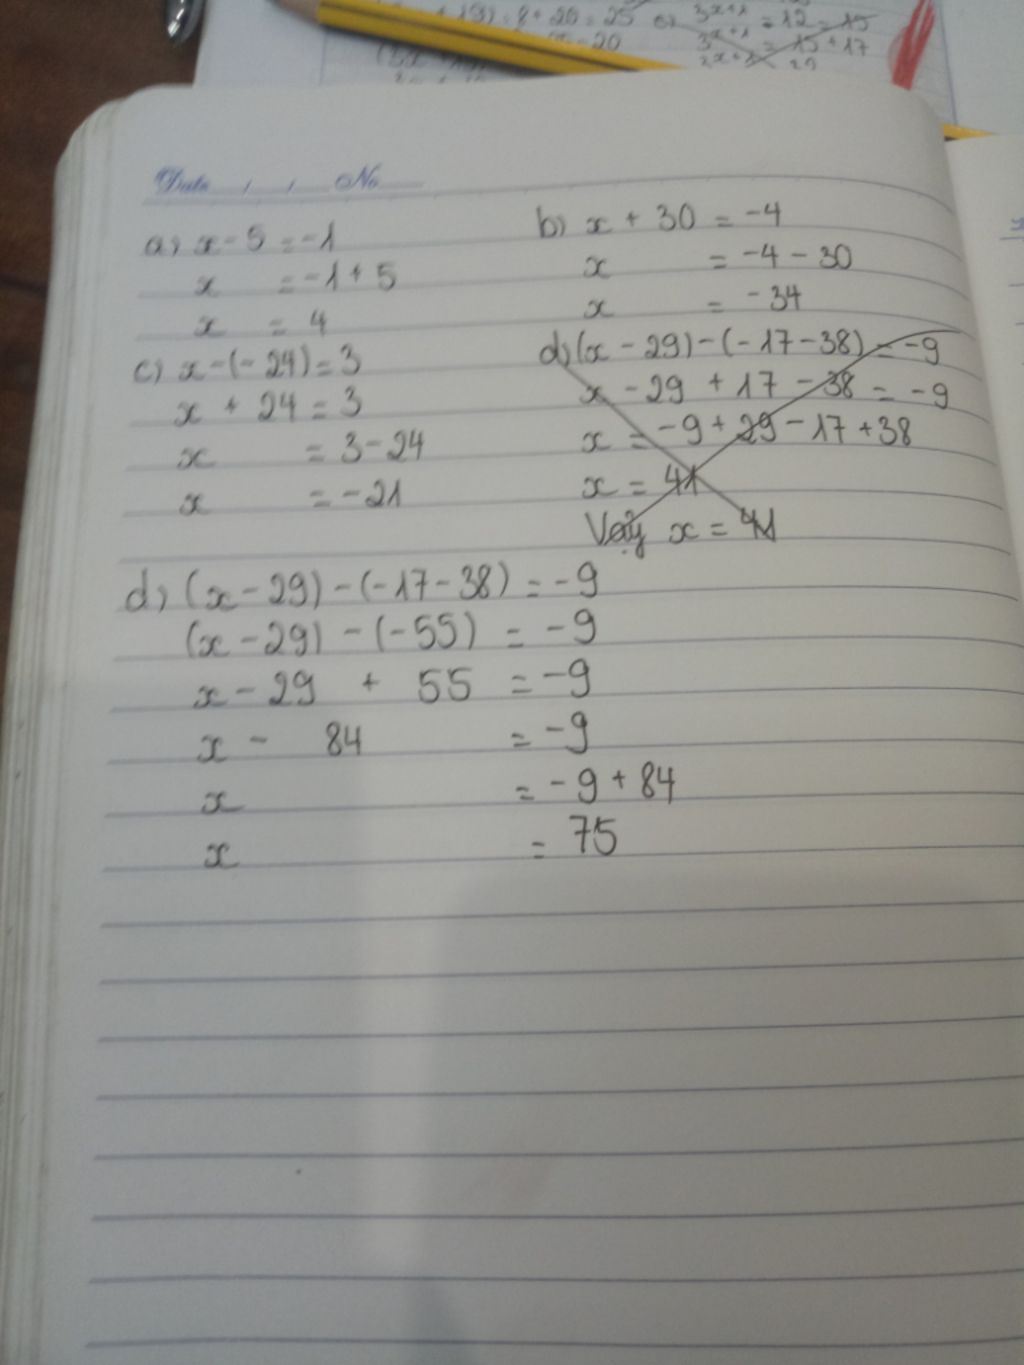 3x+1 = 12 - 15
3x+1 = 15 + 17
Date , , No
a) x - 5 = -1
x = -1 + 5
x = 4
b) x + 30 = -4
x = -4 - 30
x = -34
c) x - (- 24) = 3
x + 24 = 3
x = 3 - 24
x = -21
d) (x - 29) - (-17 - 38) = -9
x - 29 + 17 - 38 = -9
x = -9 + 29 - 17 + 38
x = 41
Vậy x = 41
d) (x - 29) - (-17 - 38) = -9
(x - 29) - (-55) = -9
x - 29 + 55 = -9
x - 84 = -9
x = -9 + 84
x = 75